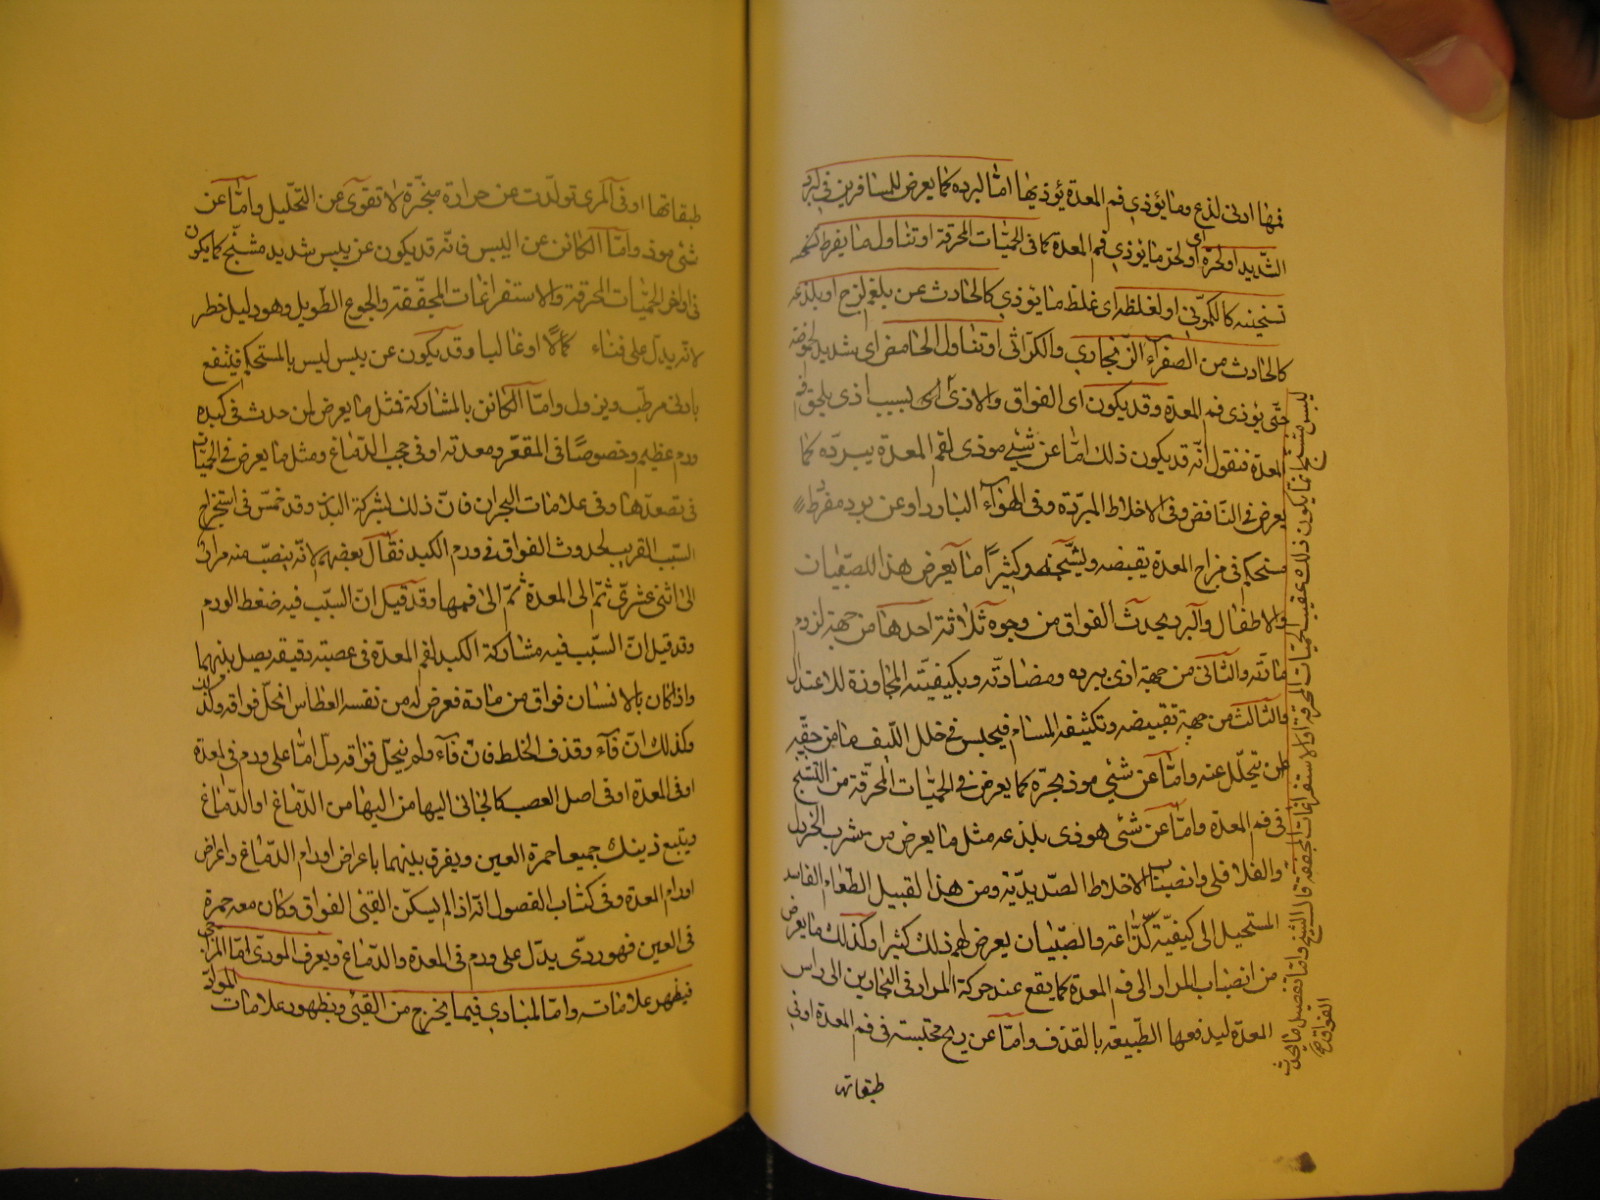 فمها ادنى لذع وما يؤذى فم المعدة يؤذيها امّا لبرده كما يعرض للمسافرين فى البرد
الشديد او لحرّه اى او لحرّ ما يؤذى فم المعدة كما فى الحميّات المحرقة او تناول ما يفرط
تسخينه كالكمّونى او لغلظه اى غلظ ما يؤذى كالحادث عن بلغم لزج او بلذعه
كالحادث من الصفرآء الزّنجارى والكرّاثى او تناول الحامض اى شديد الحموضة
حتّى يؤذى فم المعدة وقد يكون اى الفواق والاذى بسبب اذى يلحق فم
المعدة فنقول انّه قد يكون ذلك امّا عن شئ موذى لفم المعدة يبرده كما
يعرض فى النّافض وفى الاخلاط المبرّدة وفى الهوآء البارد او عن برد مفرط
مستحكم فى مزاج المعدة يقبضه ويشنّجه وكثيرًا ما يعرض هذا للصبّيان
والاطفال والبرد يحدث الفواق من وجوه ثلاثة احدها من جهة لزوم
مادّته والثّانى من جهة اذى برده ومضادّته وبكيفيّته المجاوزة للاعتدال
والثّالث من جهة تقبيضه وتكثيفه المسام فيحبس فى خلل اللّيف ما من حقّه
ان يتحلّل عنه وامّا عن شئ موذ بحرّه كما يعرض فى الحميّات المحرقة من التشنّج
فى فم المعدة وامّا عن شئ موذى بلذعه مثل ما يعرض من شرب الخردل
والفلافلى وانصباب الاخلاط الصّديديّة ومن هذا القبيل الطّعام الفاسد
المستحيل الى كيفيّة لذّاعة والصّبيان يعرض لهم ذلك كثيرا وكذلك ما يعرض
من انصباب المرار الى فم المعدة كما يقع عند حركة المرار فى البحارين الى راس
المعدة ليدفعها الطّبيعة بالقذف وامّا عن ريح محتبسة فى فم المعدة او فى
طبقاته
ليبس مشنّج كما يكون ذلك عقيب الحميّات المحرقة والاستفراغات المجفّفة قال الشيخ وامّا تفصيل ما يحدث
الفواق
طبقاتها او فى المرى تولّدت عن حرارة مبخّرة لا تقوى عن التحّليل وامّا عن
شئ موذ وامّا الكائن عن اليبس فانّه قد يكون عن يبس شديد مشنّج كما يكون
فى اواخر الحميّات المحرقة والاستفراغات المجفّفة والجوع الطّويل وهو دليل خطر
لانّه يدلّ على فناء كمالًا او غالبا وقد يكون عن يبس ليس بالمستحكم فينتفع
بادنى مرطّب ويزول وامّا الكائن بالمشاركة فمثل ما يعرض لمن حدث فى كبده
ورم عظيم وخصوصًا فى المقعّر ومعدته او فى حجب الدّماغ ومثل ما يعرض فى الحميّات
فى تصعدّها وفى علامات البحران فانّ ذلك لشركة البدن وقد خمّس فى استخراج
السّبب القريب لحدوث الفواق فى ورم الكبد فقال بعضهم لانّه ينصبّ منه مرار
الى اثنى عشرىّ ثمّ الى المعدة ثمّ الى فمها وقد قيل انّ السّبب فيه ضغط الورم
وقد قيل انّ السّبب فيه مشاركة الكبد لفم المعدة فى عصبة دقيقة يصل بينهما
واذا كان بالانسان فواق من مادّة فعرض له من نفسه العطاس انحلّ فواقه
وكذلك ان قآء وقذف الخلط فان قآء ولم ينحلّ فواقه دلّ امّا على ورم فى المعدة
او فى المعدة او فى اصل العصب كالجائى اليها من الدّماغ او الدّماغ
ويتبع ذينك جميعا حمرة العين ويفرق بينهما باعراض اورام الدّماغ واعراض
اورام المعدة وفى كتاب الفصول انّه اذا لم يسكّن القئى الفواق وكان معه حمرة
فى العين فهو ردى يدلّ على ورم فى المعدة والدّماغ ويعرف المودى امّا المزاجى
فيظهر علاماته وامّا المادى فيما يخرج من القئى وبظهور علامات الموادّ